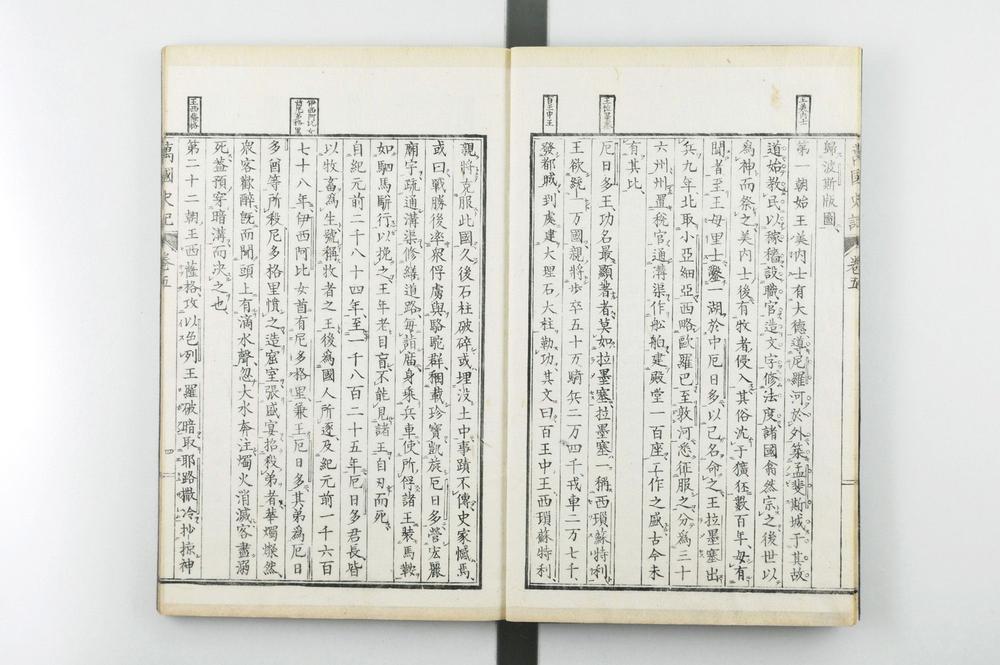 歸波斯版圖
第一朝始王美內士有大德導尼羅河於外築孟斐斯城于其故
道始教民以稼穡設職官造文字修法度諸國翕然宗之後世以
為神而祭之美內士後有牧者侵入其俗沈于獷狂數百年毋有
聞者至王母里士鑿一湖於中厄日多以己名命之王拉墨塞出
兵九年北取小亞細亞西略歐羅巴至敦河悉征服之分為三十
六州州置稅官通溝渠作舩舶建殿堂一百座工作之盛古今未
有其比
厄日多王功名最顯著者莫如拉墨塞拉墨塞一稱西瑣蘇特利
王欲統一万國親將步卒五十万騎兵二万四千戎車二万七千
發都城到處建大理石大柱勒功其文曰百王中王西瑣蘇特利
王美內士
王拉墨塞
百王中王
萬國史記
卷五
親將克服此國久後石柱破碎或埋沒土中事蹟不傳史家憾焉
或曰戰勝後率衆俘虜與駱駝群稛載珍寶凱旋厄日多營宏嚴
廟宇疏通溝渠修繕道路每詣庿身乘兵車使所俘諸王裝馬鞍
如駟馬駢行以挽之王年老目盲不能見諸王自刃而死
自紀元前二千八十四年至一千八百二十五年厄日多君長皆
以牧畜為生號稱牧者之王後為國人所逐及紀元前一千六百
七十八年伊西阿比女酋有尼多格里兼王厄日多其弟為厄日
多酋等所殺尼多格里憤之造窟室張盛宴招殺弟者華燭燦然
衆客歡醉既而聞頭上有滿水聲忽大水奔注燭火消滅客盡溺
死蓋預穿暗溝而決之也
第二十二朝王西薩格攻以色列王羅破暗取耶路撒冷抄掠神
王西薩格
萬國史記
卷五
四